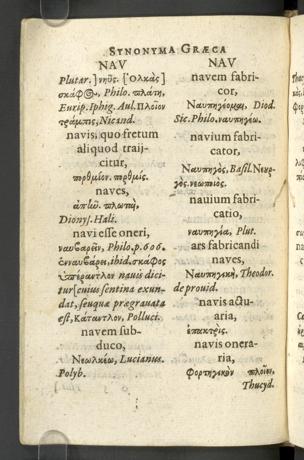 SYNONYMA GRÆCA
NAV
Plutar. ] νηῦς. [Ὁλκὰς]
σκάφος, Philo. πλάτη,
Eurip. Iphig. Aul. Πλοῖον
τράμπις, Nicand.
navis, quo fretum
aliquod traij-
citur,
πορθμίον. πορθμίς.
naves,
πλωτὰ,
Dionys. Hali.
navi esse oneri,
ναυβαρεῖν, Philo, p. 606.
ἐναυβάρει, ibid. σκάφος
ὑπέραντλον navis dici-
tur [cuius sentina exun-
dat, seu quæ prægravata
est, Κάταντλον, Polluci.
navem sub-
duco,
Νεωλκέω, Lucianus.
Polyb.
NAV
navem fabri-
cor,
Ναυπηγέομαι, Diod.
Sic. Philo. ναυπηγέω.
navium fabri-
cator,
Ναυπηγὸς, Basil. Νεωρ-
γὸς. νεωποιός.
navium fabri-
catio,
ναυπηγία, Plut.
ars fabricandi
naves,
Ναυπηγικὴ, Theodor.
de provid.
navis actu-
aria,
ἐπακτρίς.
navis onera-
ria,
Φορτηγικὸν πλοῖον,
Thucyd.